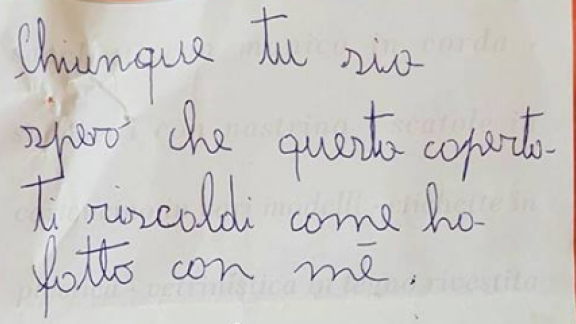 Chiunque tu sia
spero che questa coperta
ti riscaldi come ha
fatto con mē.